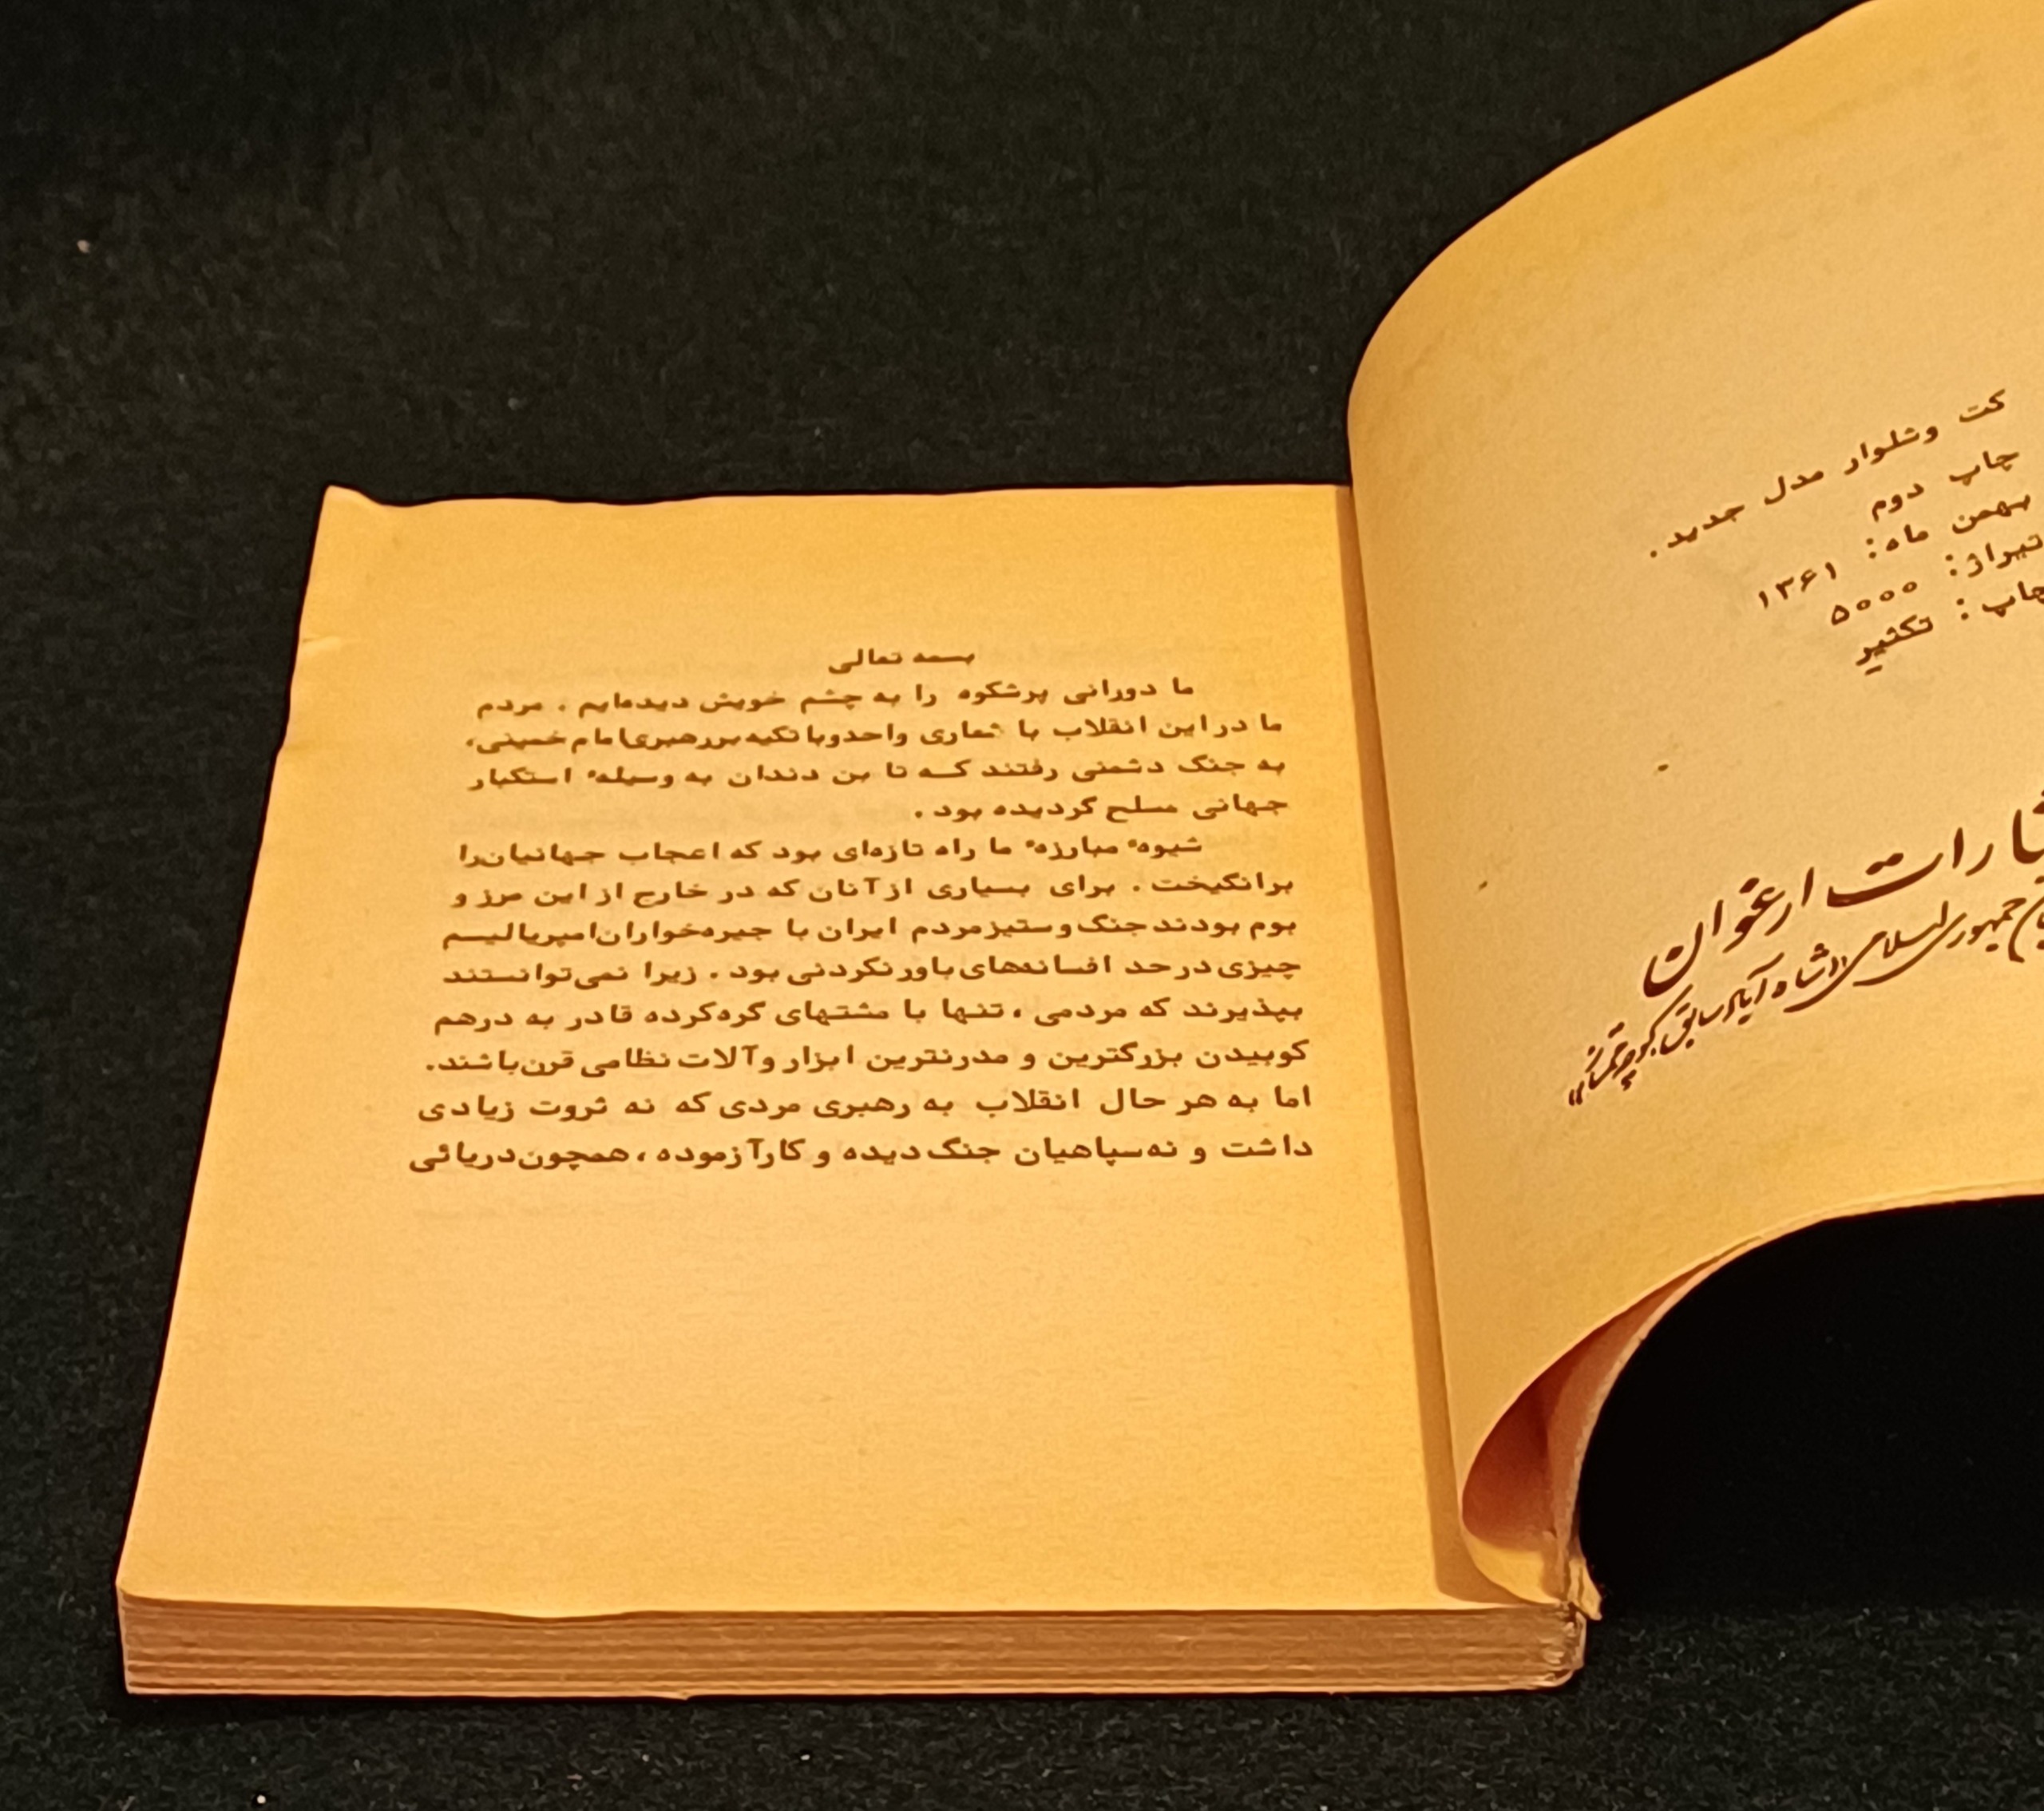 کت وشلوار مدل جدید.
چاپ دوم
بهمن ماه: ۱۳۶۱
تیراژ: ۵۰۰۰
چاپ: تکثیر
ارغوان
جمهوری اسلامی «شاه آباد سابق
بسمه تعالی
ما دورانی پرشکوه را به چشم خویش دیده‌ایم . مردم
ما در این انقلاب با شعاری واحد و با تکیه بر رهبری امام خمینی،
به جنگ دشمنی رفتند کـه تا بن دندان به وسیلهٔ استکبار
جهانی مسلح گردیده بود .
شیوهٔ مبارزهٔ ما راه تازه‌ای بود که اعجاب جهانیان را
برانگیخت . برای بسیاری از آنان که در خارج از این مرز و
بوم بودند جنگ و ستیز مردم ایران با جیره‌خواران امپریالیسم
چیزی در حد افسانه‌های باور نکردنی بود . زیرا نمی‌توانستند
بپذیرند که مردمی ، تنها با مشتهای گره‌کرده قادر به درهم
کوبیدن بزرگترین و مدرنترین ابزار و آلات نظامی قرن باشند.
اما به هر حال انقلاب به رهبری مردی که نه ثروت زیادی
داشت و نه سپاهیان جنگ دیده و کارآزموده ، همچون دریائی